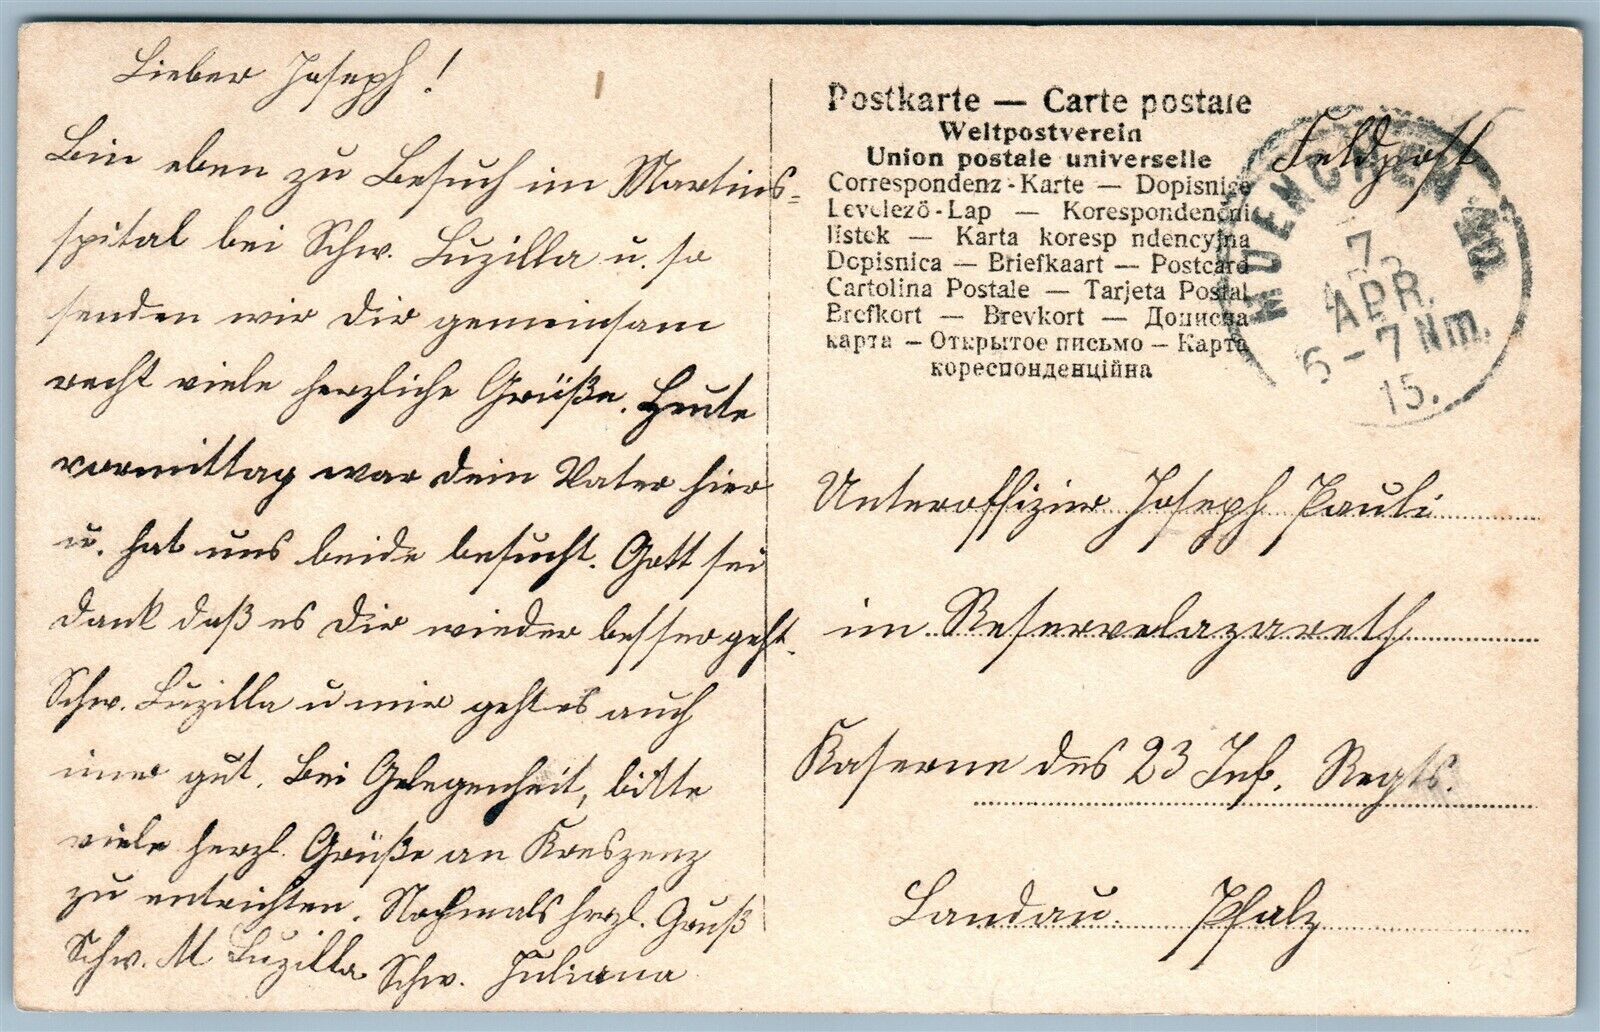 Lieber Joseph!
Bin eben zu Besuch im Martins=
spital bei Schw. Luzilla u. so
senden wir Dir gemeinsam
recht viele herzliche Grüße. Heute
vormittag war dein Vater hier
u. hat uns beide besucht. Gott sei
dank daß es Dir wieder besser geht.
Schw. Luzilla u mir geht es auch
imer gut. Bei Gelegenheit, bitte
viele herzl. Grüße an Kreszenz
zu entrichten. Nochmals herzl. Gruß
Schw. M Luzilla Schw. Juliana
Postkarte — Carte postale
Weltpostverein
Union postale universelle
Correspondenz-Karte — Dopisnice
Levelező-Lap — Korespondenční
lístek — Karta koresp ndencyjna
Dopisnica — Briefkaart — Postcard
Cartolina Postale — Tarjeta Postal
Brefkort — Brevkort — Дописна
карта — Открытое письмо — Карта
кореспонденційна
Feldpost
MUENCHEN
APR.
6-7 Nm.
15.
Unteroffizier Joseph Pauli
im Reservelazareth
Kaserne des 23 Inf. Regts.
Landau Pfalz